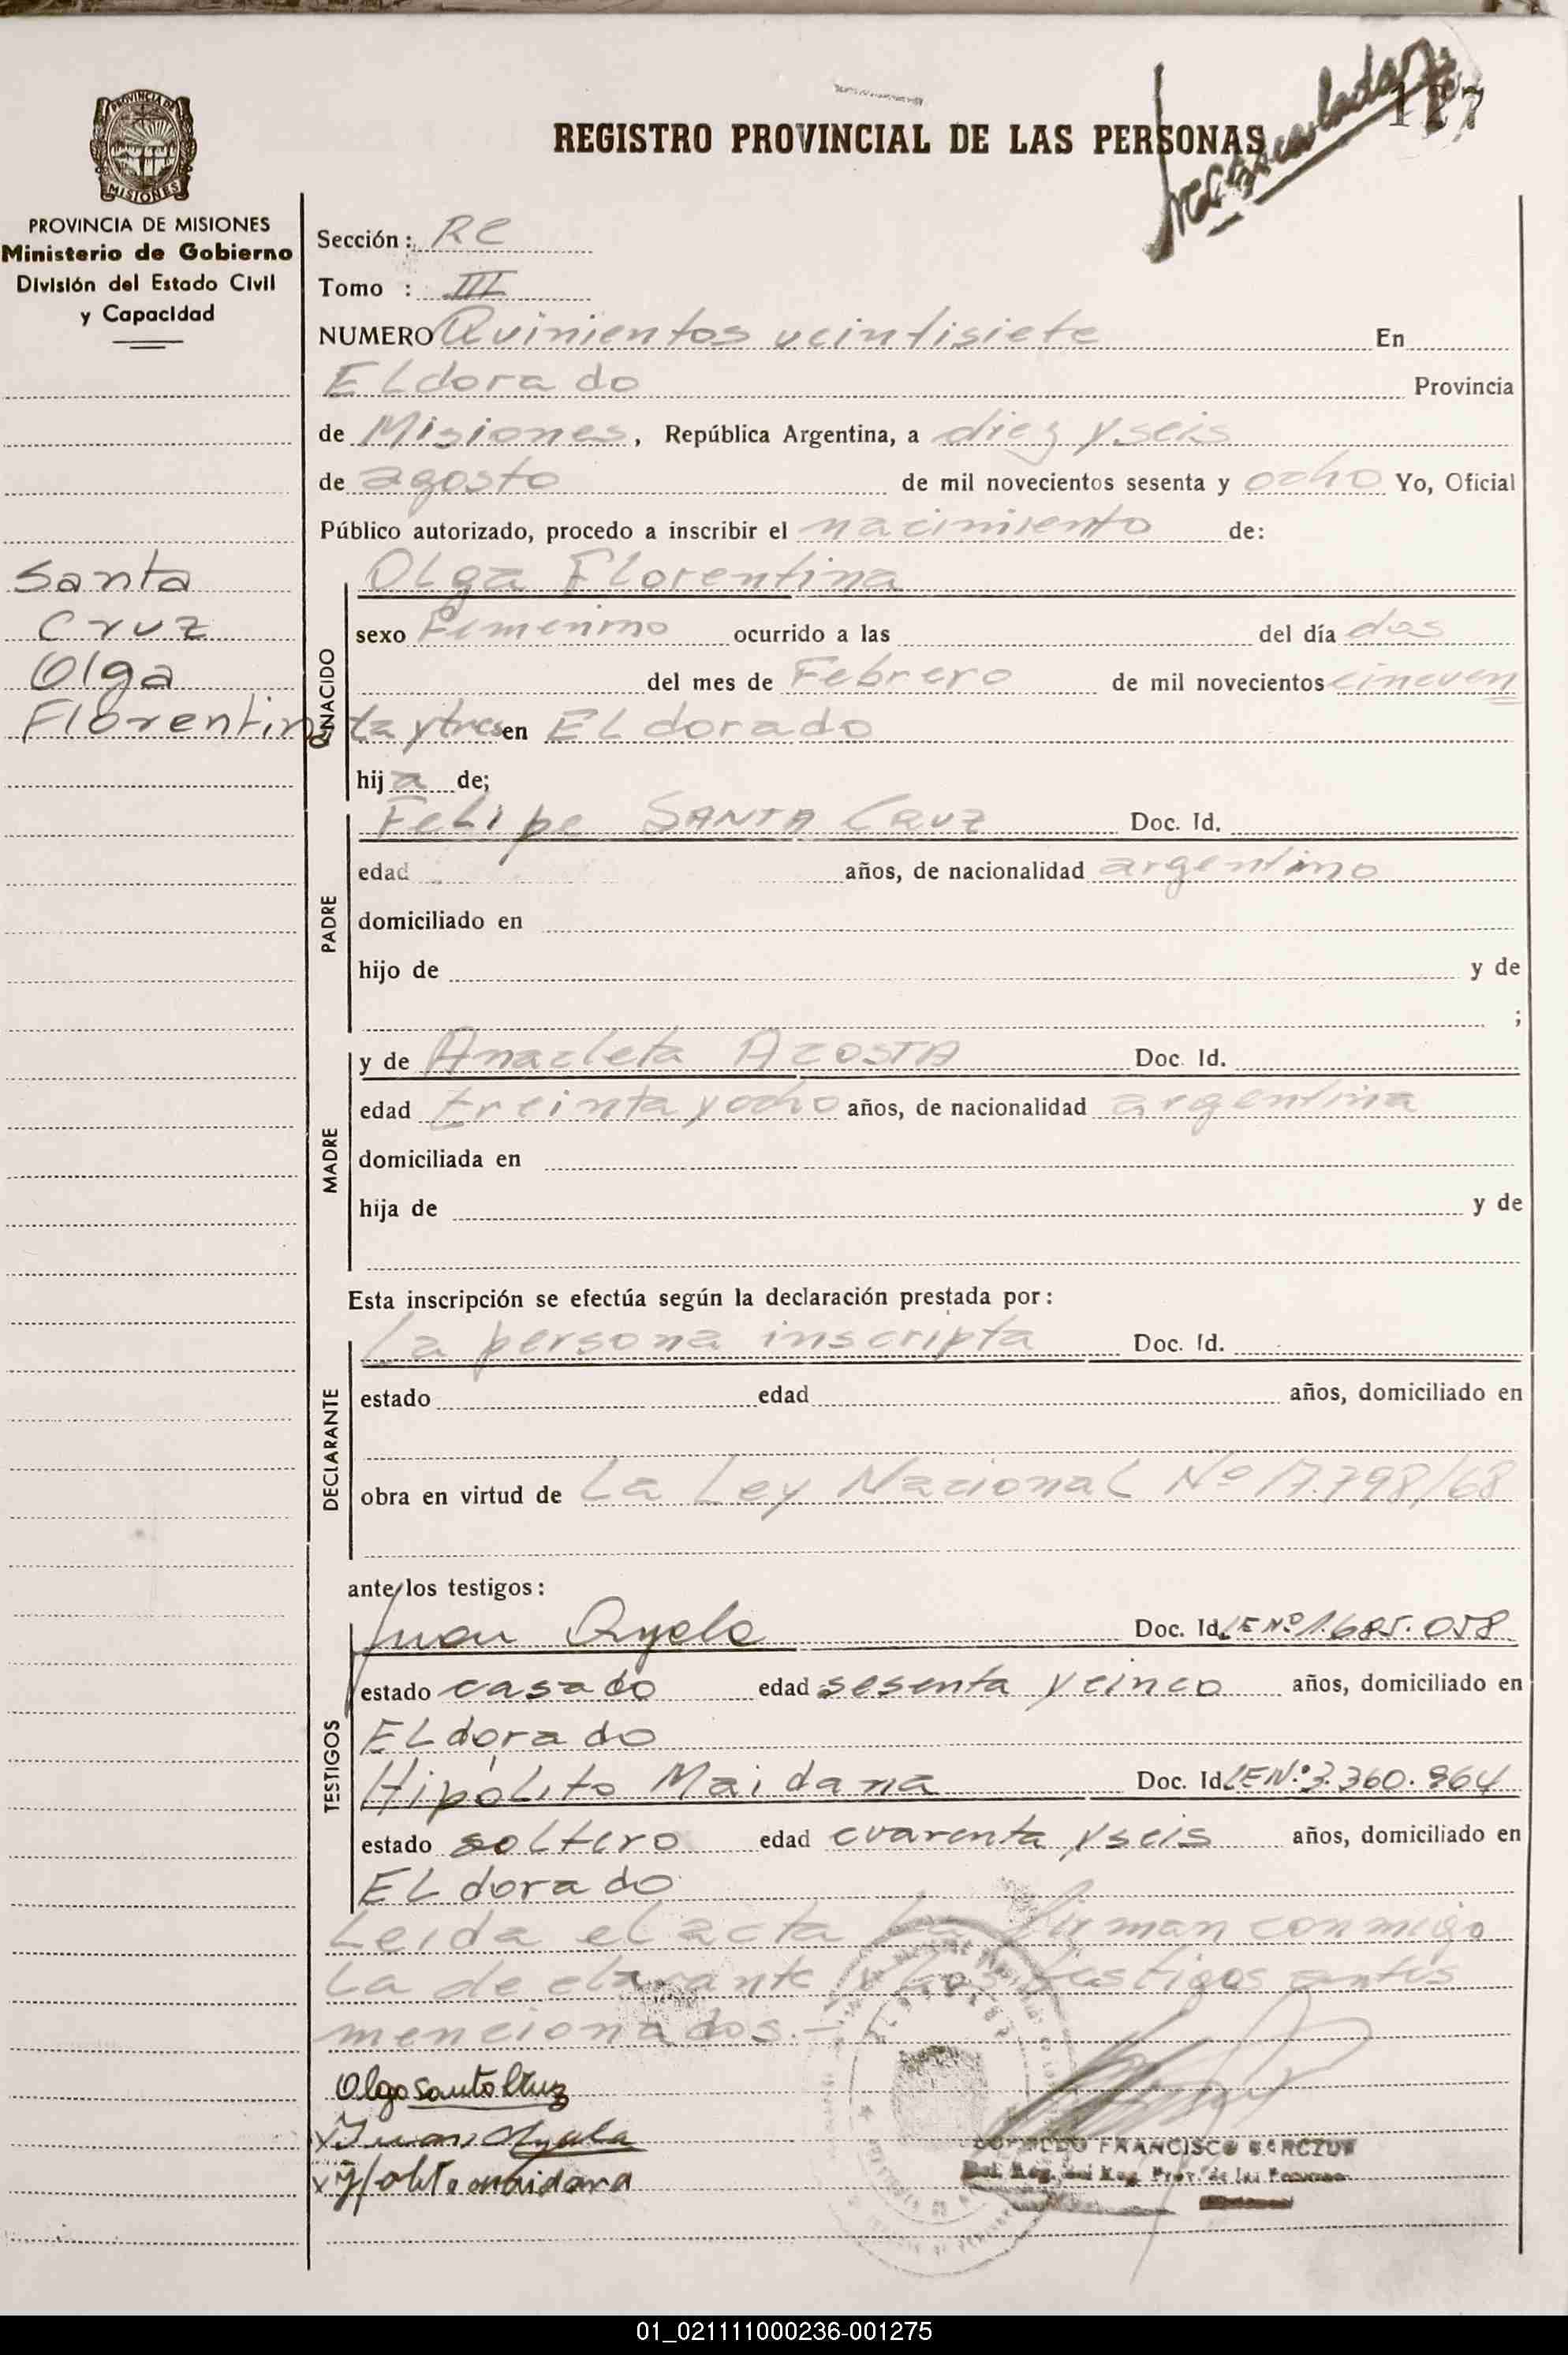 REGISTRO PROVINCIAL DE LAS PERSONAS
127
PROVINCIA DE
MISIONES
PROVINCIA DE MISIONES
Ministerio de Gobierno
División del Estado Civil
y Capacidad
Sección: RC
Tomo : III
NUMERO Quinientos veintisiete En
ELdorado Provincia
de Misiones, República Argentina, a diez y seis
de agosto de mil novecientos sesenta y ocho Yo, Oficial
Público autorizado, procedo a inscribir el nacimiento de:
Santa
Cruz
Olga
Florentina
NACIDO
OLga Florentina
sexo Femenino ocurrido a las del día dos
del mes de Febrero de mil novecientos cincuen
ta y tres en ELdorado
hija de;
PADRE
FeLipe SANTA CRUZ Doc. Id.
edad años, de nacionalidad argentino
domiciliado en
hijo de y de
;
MADRE
y de Anacleta ACOSTA Doc. Id.
edad treinta y ocho años, de nacionalidad argentina
domiciliada en
hija de y de
Esta inscripción se efectúa según la declaración prestada por:
DECLARANTE
La persona inscripta Doc. Id.
estado edad años, domiciliado en
obra en virtud de La Ley NacionaL Nº 17.798/68
ante los testigos:
TESTIGOS
Juan Ayala Doc. Id. LE Nº 1.685.058
estado casado edad sesenta y cinco años, domiciliado en
ELdorado
HipóLito Maidana Doc. Id. LE N.º 3.360.964
estado soLtero edad cuarenta y seis años, domiciliado en
ELdorado
Leida eL acta La firman conmigo
La declarante y Los testigos antes
mencionados.-
Olga Santa Cruz
x Juan Ayala
x maidana
FRANCISCO
01_021111000236-001275